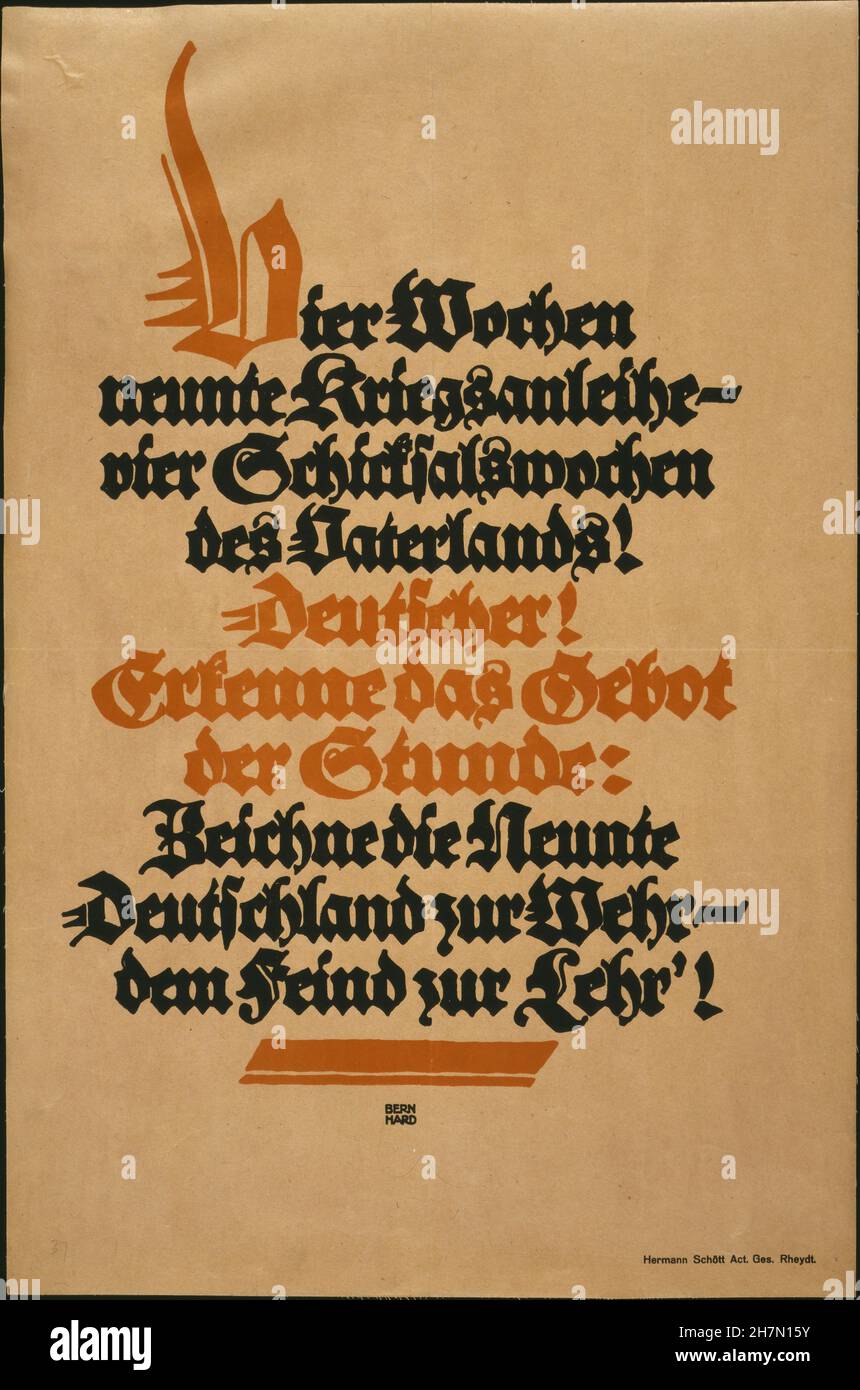 Vier Wochen
neunte Kriegsanleihe—
vier Schicksalswochen
des Vaterlands!
Deutscher!
Erkenne das Gebot
der Stunde:
Zeichne die Neunte
Deutschland zur Wehr—
dem Feind zur Lehr'!
BERN
HARD
37
Hermann Schött Act. Ges. Rheydt.
alamy
alamy
Image ID: 2H7N15Y
www.alamy.com